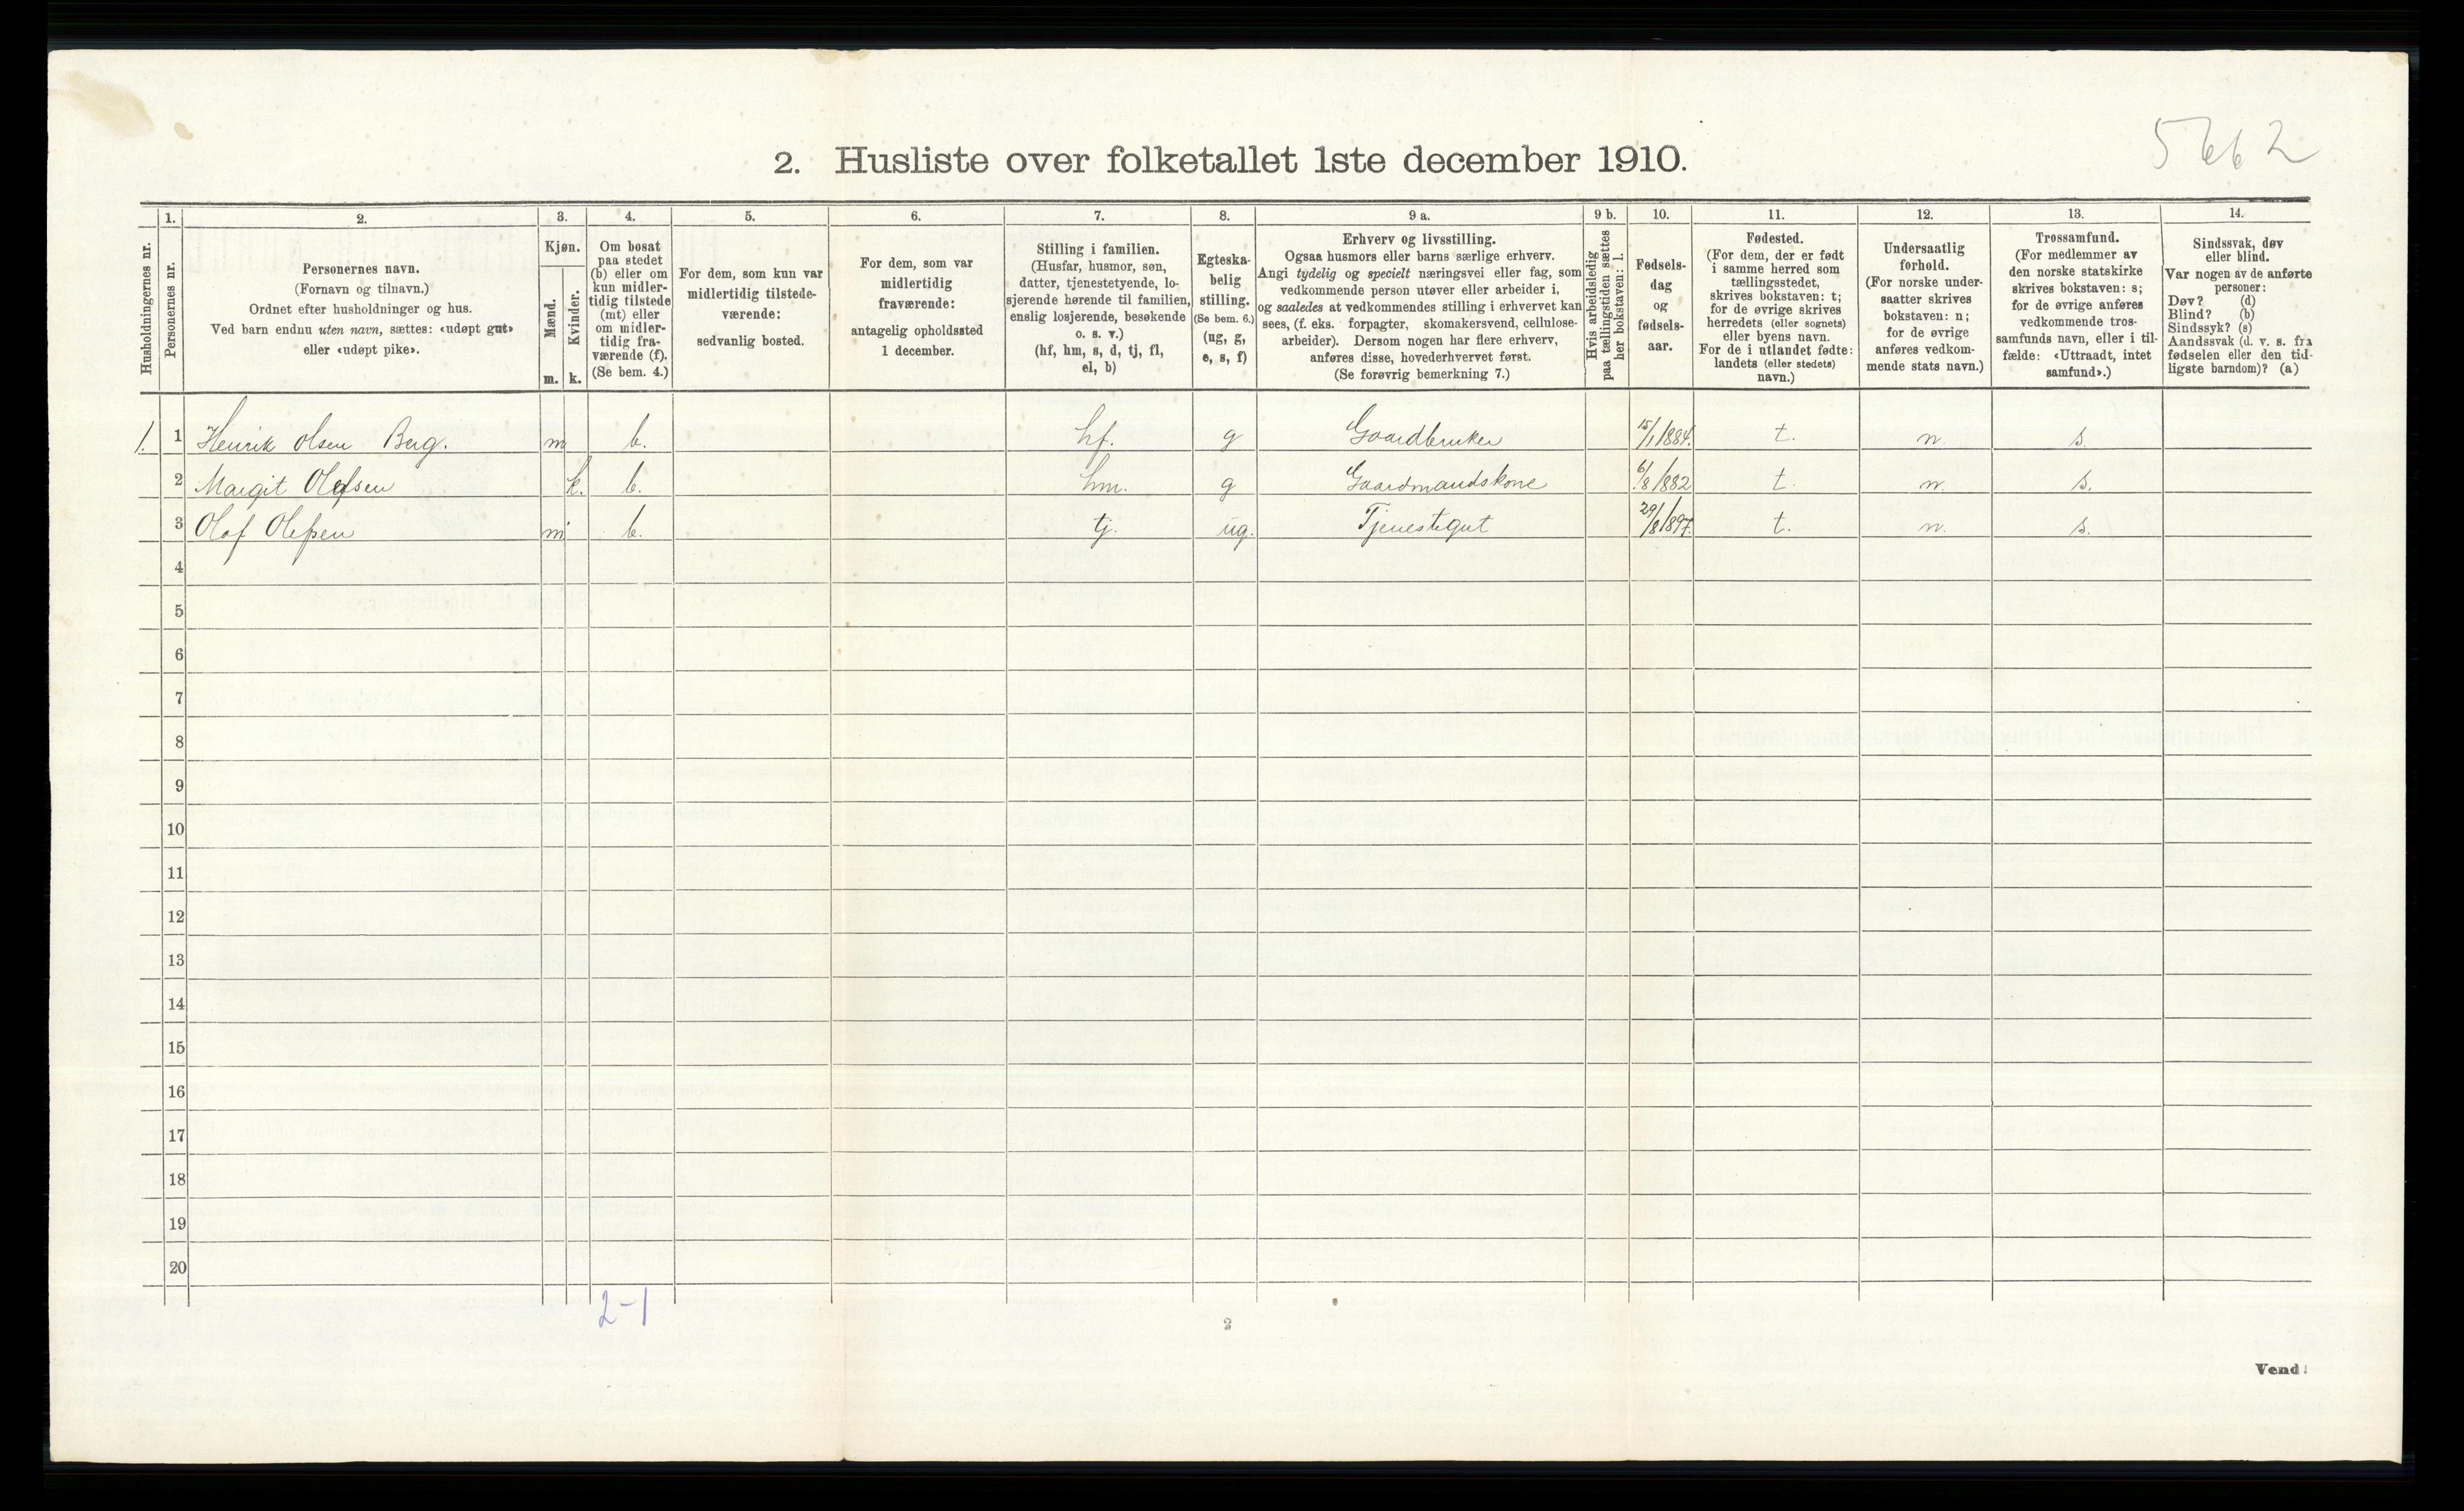 5662
2. Husliste over folketallet 1ste december 1910.
Husholdningernes nr.
1.
Personernes nr.
2.
Personernes navn.
(Fornavn og tilnavn.)
Ordnet efter husholdninger og hus.
Ved barn endnu uten navn, sættes: «udøpt gut»
eller «udøpt pike».
3.
Kjøn.
Mænd.
m.
Kvinder.
k.
4.
Om bosat
paa stedet
(b) eller om
kun midler-
tidig tilstede
(mt) eller
om midler-
tidig fra-
værende (f).
(Se bem. 4.)
5.
For dem, som kun var
midlertidig tilstede-
værende:
sedvanlig bosted.
6.
For dem, som var
midlertidig
fraværende:
antagelig opholdssted
1 december.
7.
Stilling i familien.
(Husfar, husmor, søn,
datter, tjenestetyende, lo-
sjerende hørende til familien,
enslig losjerende, besøkende
o. s. v.)
(hf, hm, s, d, tj, fl,
el, b)
8.
Egteska-
belig
stilling.
(Se bem. 6.)
(ug, g,
e, s, f)
9 a.
Erhverv og livsstilling.
Ogsaa husmors eller barns særlige erhverv.
Angi tydelig og specielt næringsvei eller fag, som
vedkommende person utøver eller arbeider i,
og saaledes at vedkommendes stilling i erhvervet kan
sees, (f. eks. forpagter, skomakersvend, cellulose-
arbeider). Dersom nogen har flere erhverv,
anføres disse, hovederhvervet først.
(Se forøvrig bemerkning 7.)
9 b.
Hvis arbeidsledig
paa tællingstiden sættes
her bokstaven: l.
10.
Fødsels-
dag
og
fødsels-
aar.
11.
Fødested.
(For dem, der er født
i samme herred som
tællingsstedet,
skrives bokstaven: t;
for de øvrige skrives
herredets (eller sognets)
eller byens navn.
For de i utlandet fødte:
landets (eller stedets)
navn.)
12.
Undersaatlig
forhold.
(For norske under-
saatter skrives
bokstaven: n;
for de øvrige
anføres vedkom-
mende stats navn.)
13.
Trossamfund.
(For medlemmer av
den norske statskirke
skrives bokstaven: s;
for de øvrige anføres
vedkommende tros-
samfunds navn, eller i til-
fælde: «Uttraadt, intet
samfund».)
14.
Sindssvak, døv
eller blind.
Var nogen av de anførte
personer:
Døv? (d)
Blind? (b)
Sindssyk? (s)
Aandssvak (d. v. s. fra
fødselen eller den tid-
ligste barndom)? (a)
1. 1 Henrik Olsen Berg. m b. hf. g Gaardbruker 15/1 1884. t. n. s.
2 Margit Olefsen k. b. hm. g Gaardmandskone 6/8 1882 t. n. s.
3 Olof Olefsen m b. tj. ug. Tjenestegut 29/8 1897. t. n. s.
4
5
6
7
8
9
10
11
12
13
14
15
16
17
18
19
20
2-1
2
Vend!